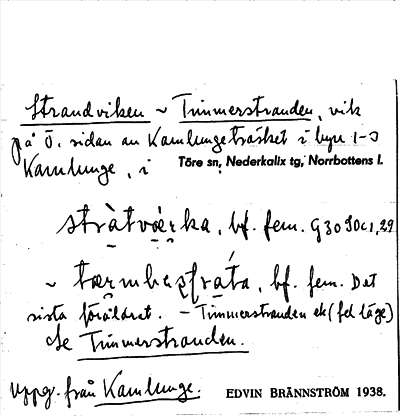 Strandviken ~ Timmerstranden, vik
på ö. sidan av Kamlungeträsket i byn 1-3
Kamlunge, i Töre sn, Nederkalix tg, Norrbottens l.
bf. fem.
~ bf. fem. Det
sista föråldrat. - Timmerstranden ek (fel läge)
Se Timmerstranden.
Uppg. från Kamlunge. EDVIN BRÄNNSTRÖM 1938.